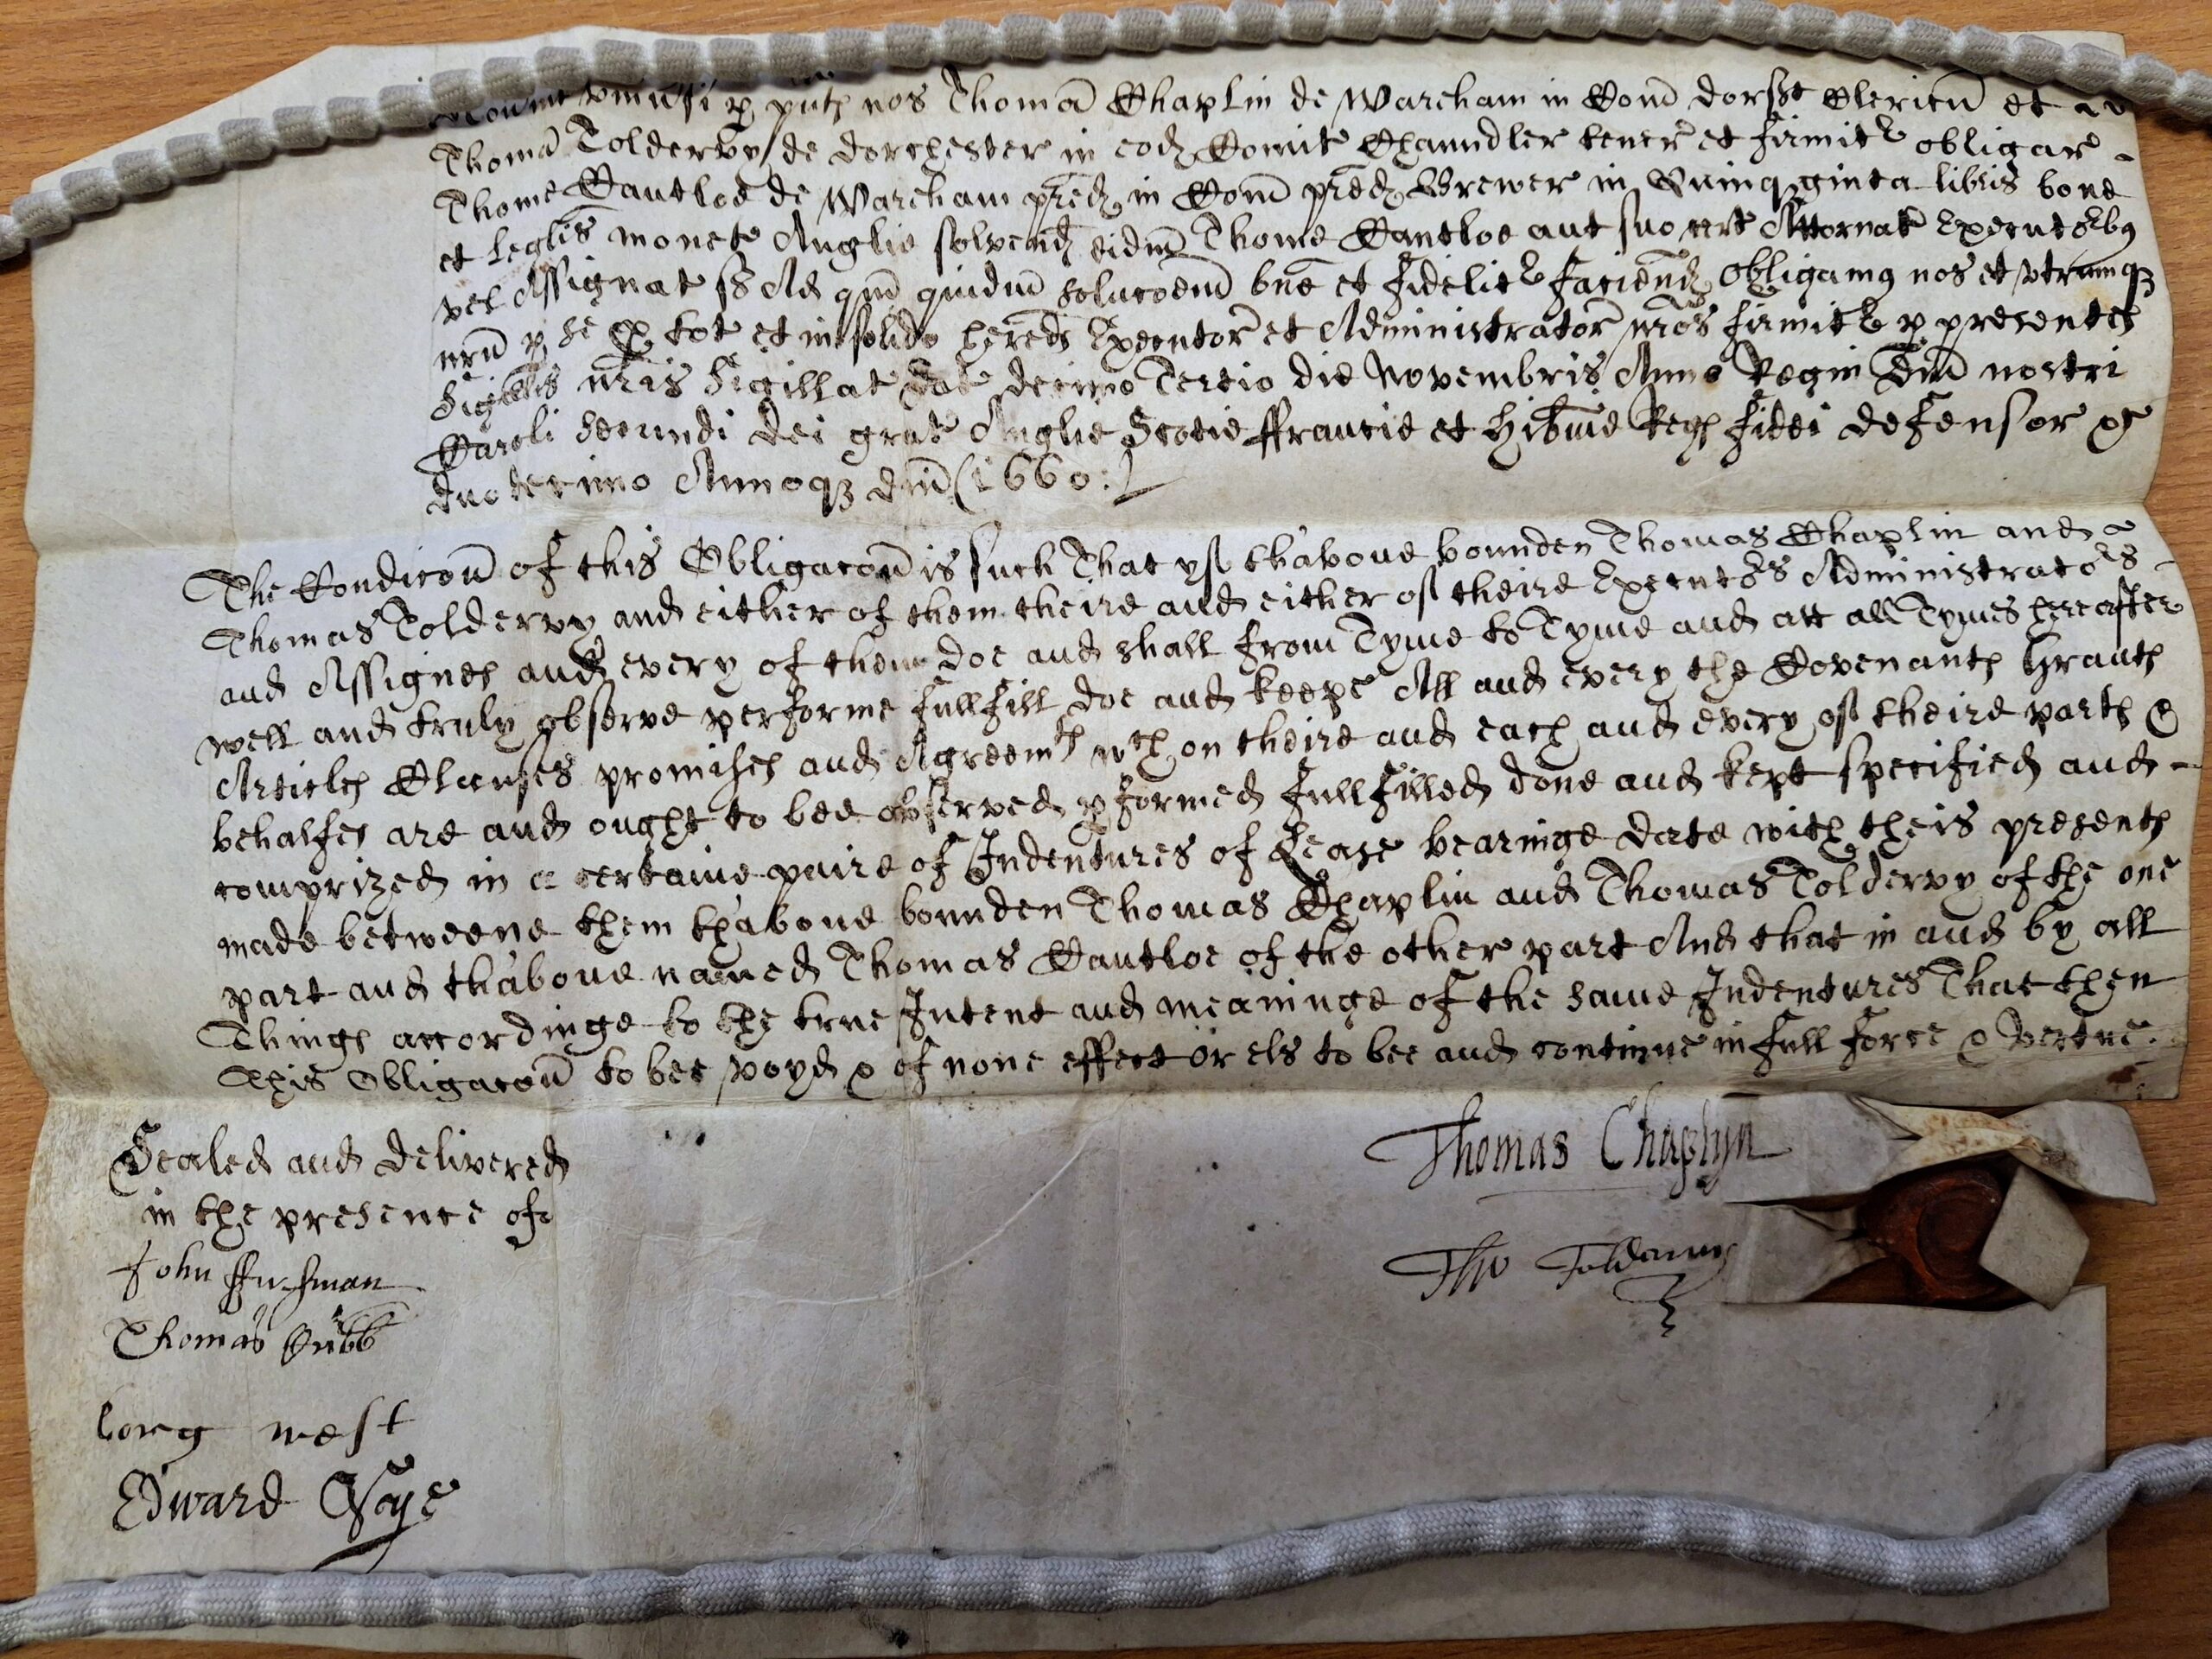 Noverint univsi p pntes nos Thomā Chaplin de Wareham in Com̄ dorst Clericū et
Thomā Toldervy de dorchester in eod Comit Chaundler tener et firmit obligar
Thome Cantloe de Wareham pred in Com̄ pred Brewer in Quinqginta libris bone
et leglis monet Anglie solvend eidm̄ Thome Cantloe aut suo cert Attornat Executorbȝ
vel Assignat ss Ad qm̄ quidm̄ solucoem̄ bn̄e et fidelit faciend Obligamȝ nos et utrumqȝ
nrū p se p tot et in solido hered Executor et Administrator nros firmit p presentes
Sigillis nris Sigillat Dat decimo Tertio die Novembris Anno Regni Dm̄ nostri
Caroli Secundi Dei grat Anglie Scotie ffrancie et Hib̄nie Regs fidei defensor &c
duodecimo Annoqȝ dm̄ (1660:)
The Condicoū of this Obligacoū is such That yf th'above bounden Thomas Chaplin and
Thomas Toldervy and either of them theire and either of theire Executors Administrators
and Assignes and every of them doe and shall from Tyme to Tyme and att all Tymes hereafter
well and truly observe performe fullfill doe and keepe All and every the Covenants Grants
Articles Clauses promises and Agreemts wch on theire and each and every of theire parts &
behalfes are and ought to bee observed pformed fullfilled done and kept specified and
comprized in a certaine paire of Indentures of Lease bearinge date with theis presents
made betweene them th'above bounden Thomas Chaplin and Thomas Toldervy of the one
part and th'above named Thomas Cantloe of the other part And that in and by all
Things accordinge to the true Intent and meaninge of the same Indentures That then
This Obligacoū to bee voyd & of none effect or els to bee and continue in full force & vertue.
Sealed and delivered
in the presence of
Thomas Chaplyn
Tho Toldervy
John ffursman
Thomas Cubb
Gorg West
Edward Gaye